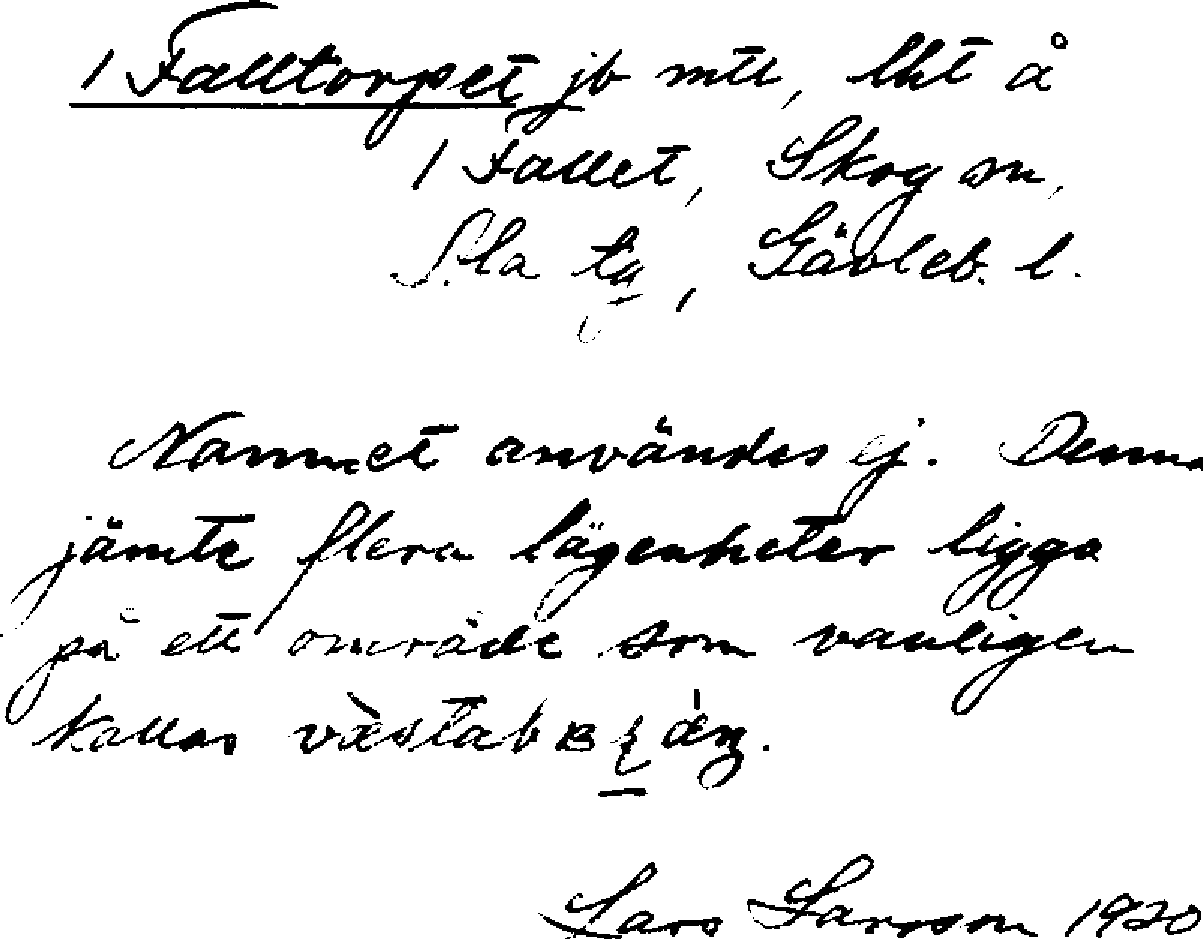 1 Falltorpet jb mtl, lht å
1 Fallet, Skog sn,
Ala tg, Gävleb. l.
Namnet användes ej. Denna
jämte flera lägenheter ligga
på ett område som vanligen
kallas
Lars Larsson 1920